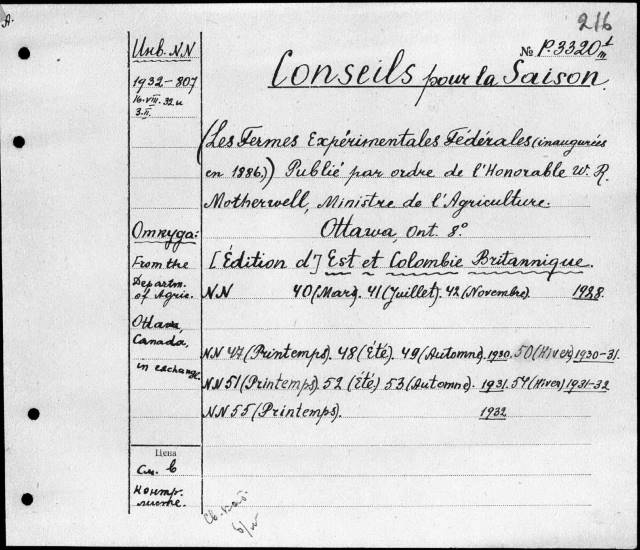 A.
216
Инв. NN
№ P.3320 1/n
1932-807
16.VIII.32.и
3.II.
Conseils pour la Saison.
(Les Fermes Expérimentales Fédérales (inaugurées
en 1886.)) Publié par ordre de l'Honorable W. R.
Motherwell, Ministre de l'Agriculture.
Ottawa, Ont. 8º.
Откуда:
From the
Departm.
of Agric.
Ottawa,
Canada,
in exchang.
[Édition d'] Est et Colombie Britannique.
NN 40 (Mars). 41 (Juillet). 42 (Novembre). 1928.
NN 47 (Printemps). 48 (Été). 49 (Automne). 1930. 50 (Hiver) 1930-31.
NN 51 (Printemps). 52 (Été) 53 (Automne). 1931. 54 (Hiver) 1931-32
NN 55 (Printemps). 1932
Цена
См. в
контр.
листке.
Св. кат.